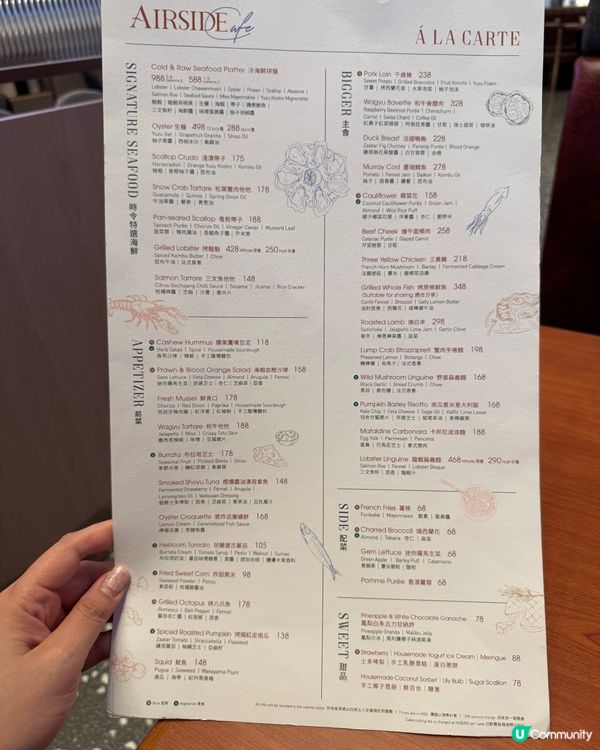 AIRSIDE Cafe
Á LA CARTE
SIGNATURE SEAFOOD 時令特選海鮮
Cold & Raw Seafood Platter 冷海鮮拼盤
988 588
Lobster | Lobster Chawanmushi | Oyster | Prawn | Scallop | Abalone |
Salmon Rice | Seafood Sauce | Miso Mayonnaise | Yuzu Kosho Mignonette
Oyster 生蠔 498 288
Yuzu Gel | Grapefruit Granita | Shiso Oil
柚子果醬 | 西柚冰沙 | 紫蘇油
Scallop Crudo 淺漬帶子 175
Horseradish | Orange Yuzu Kosho | Kombu Oil
辣根 | 香橙柚子醬 | 昆布油
Snow Crab Tartare 松葉蟹肉他他 178
Guacamole | Quinoa | Spring Onion Oil
牛油果醬 | 藜麥 | 青蔥油
Pan-seared Scallop 香煎帶子 188
Spinach Purée | Chorizo Oil | Vinegar Caviar | Mustard Leaf
Grilled Lobster 烤龍蝦 428 Whole 原隻 250 Half 半隻
Spiced Kombu Butter | Chive
昆布牛油 | 法式香蔥
Salmon Tartare 三文魚他他 148
Citrus Gochujang Chilli Sauce | Sesame | Jicama | Rice Cracker
柑橘辣醬 | 芝麻 | 沙葛 | 脆米片
APPETIZER 前菜
Cashew Hummus 腰果鷹嘴豆泥 118
Herb Salad | Spice | Housemade Sourdough
香草沙律 | 辣椒 | 手工酸種麵包
Prawn & Blood Orange Salad 海蝦血橙沙律 158
Gem Lettuce | Feta Cheese | Almond | Arugula | Fennel
Fresh Mussel 鮮青口 178
Chorizo | Red Onion | Paprika | Housemade Sourdough
西班牙辣肉腸 | 紅洋蔥 | 紅椒粉 | 手工酸種麵包
Wagyu Tartare 和牛他他 188
Jalapeño | Miso | Crispy Tofu Skin
墨西哥辣椒 | 味噌 | 豆腐脆片
Burrata 布拉塔芝士 178
Seasonal Fruit | Pickled Beets | Shiso
季節水果 | 醃紅菜頭 | 紫蘇葉
Smoked Shoyu Tuna 煙燻醬油漬吞拿魚 148
Fermented Strawberry | Fennel | Arugula |
Lemongrass Oil | Vadouvan Dressing
Oyster Croquette 脆炸忌廉蠔餅 168
Lemon Cream | Caramelised Fish Sauce
檸檬忌廉 | 焦糖魚露
Heirloom Tomato 荷蘭復古蕃茄 105
Burrata Cream | Tomato Syrup | Pesto | Walnut | Sumac
Fried Sweet Corn 炸甜粟米 98
Seaweed Powder | Ponzu
紫菜粉 | 柑橘醋醬油
Grilled Octopus 烤八爪魚 178
Romesco | Bell Pepper | Fennel
蕃茄杏仁醬 | 紅甜椒 | 茴香
Spiced Roasted Pumpkin 烤焗紅皮南瓜 138
Zaatar Tomato | Stracciatella | Flaxseed
Squid 魷魚 148
Pugua | Seaweed | Wakayama Plum
蒲瓜 | 海帶 | 紀州南高梅
BIGGER 主食
Pork Loin 千歲豬 238
Sweet Potato | Grilled Broccolini | Fruit Kimchi | Yuzu Foam
Wagyu Bavette 和牛後腰肉 328
Red Bell Pepper Romesco | Chimichurri |
Carrot | Swiss Chard | Coffee Oil
Duck Breast 法國鴨胸 228
Zaatar Fig Chutney | Parsnip Purée | Blood Orange
Murray Cod 墨瑞鱈魚 278
Pomelo | Fennel Jam | Daikon | Kombu Oil
柚子 | 茴香醬 | 蘿蔔 | 昆布油
Cauliflower 椰菜花 158
Coconut Cauliflower Purée | Onion Jam |
Almond | Wild Puff Rice
Beef Cheek 燴牛面頰肉 258
Celeriac Purée | Glazed Carrot
芹菜根蓉 | 甘筍
Three Yellow Chicken 三黃雞 218
French Horn Mushroom | Barley | Fermented Cabbage Cream
Grilled Whole Fish 烤原條鮮魚 348
(Suitable for sharing 適合分享)
Confit Fennel | Broccoli | Salty Lemon Butter
Roasted Lamb 燒白羊 298
Sunchoke | Jalapeño Lime Jam | Garlic Chive
Lump Crab Strozzapreti 蟹肉手捲麵 198
Preserved Lemon | Bottarga | Chive
醃檸檬 | 烏魚子 | 法式香蔥
Wild Mushroom Linguine 野菌扁意麵 168
Black Garlic | Bread Crumb | Chive
黑蒜 | 脆包糠 | 法式香蔥
Pumpkin Barley Risotto 南瓜薏米意大利飯 168
Kale Chip | Feta Cheese | Sage Oil | Kaffir Lime Leave
Mafaldine Carbonara 卡邦尼波浪麵 188
Egg Yolk | Parmesan | Pancetta
蛋黃 | 巴馬臣芝士 | 意式煙肉
Lobster Linguine 龍蝦扁意麵 468 Whole 原隻 290 Half 半隻
Salmon Roe | Fennel | Lobster Bisque
三文魚籽 | 茴香 | 龍蝦汁
SIDE 配菜
French Fries 薯條 68
Furikake | Mayonnaise
Charred Broccoli 燒西蘭花 68
Almond | Takana
Gem Lettuce 迷你羅馬生菜 68
Green Apple | Barley Puff | Calamansi
Pomme Purée 香滑薯蓉 68
SWEET 甜品
Pineapple & White Chocolate Ganache 78
鳳梨白朱古力甘納許
Pineapple Granita | Malibu Jelly
Strawberry | Housemade Yogurt Ice Cream | Meringue 88
士多啤梨 | 手工乳酪雪糕 | 蛋白脆餅
Housemade Coconut Sorbet | Lily Bulb | Sugar Scallion 78
手工椰子雪葩 | 鮮百合 | 糖蔥
U Community